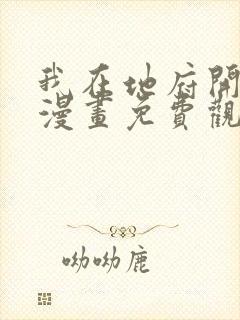 我在地府開
漫畫免費觀
呦呦鹿